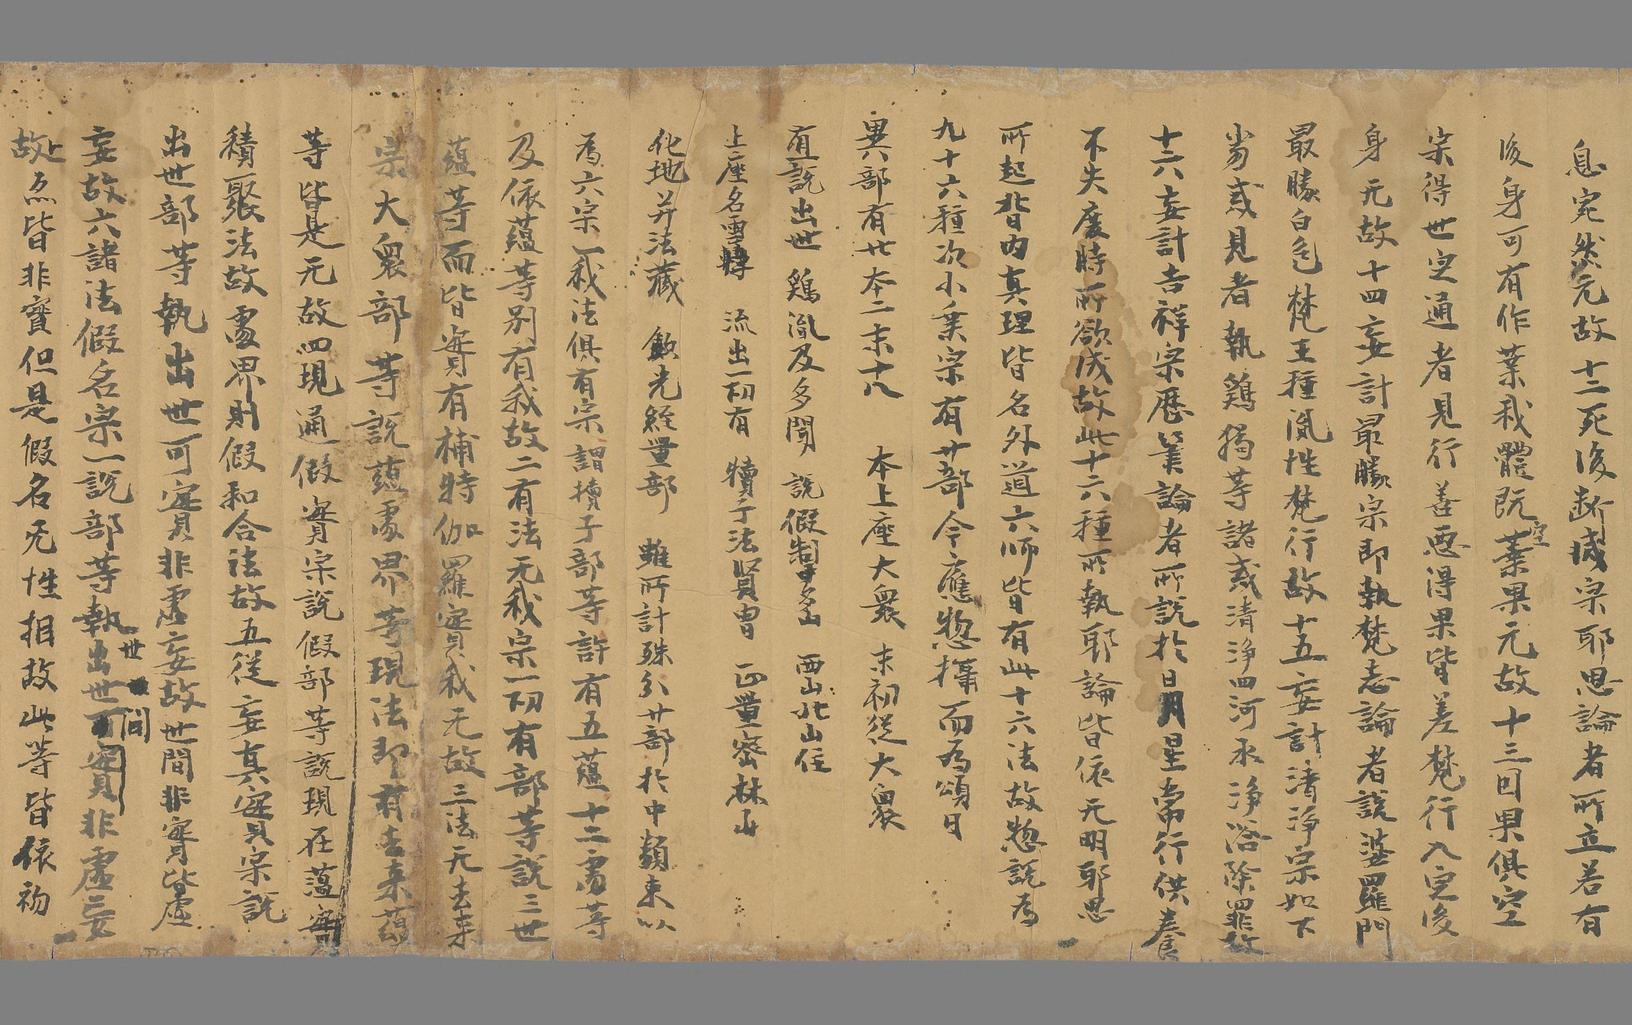 息宛然无故十二死後断滅宗耶思論者所立若有
後身可有作業我體既空業果无故十三因果俱空
宗得世定通者見行善惡得果皆差梵行入定後
身无故十四妄計最勝宗即執梵志論者說婆羅門
最勝白色梵王種胤性梵行故十五妄計清淨宗如下
劣或見者執鷄獨等諸或清淨四河水淨浴除罪故
十六妄計吉祥宗歷筭論者所說於日月星常行供養
不失度時所欲成故此十六種所執耶論皆依无明耶思
所起背內真理皆名外道六師皆有此十六法故惣說為
九十六種次小乘宗有廿部今應惣攝而為頌曰
異部有廿本二末十八 本上座大衆 末初從大衆
有一說出世 鷄胤及多聞 說假制多山 西山北山住
上座名雪轉 流出一切有 犢子法賢胄 正量密林山
化地并法藏 飲光經量部 雖所計殊分廿部於中類束以
為六宗一我法俱有宗謂犢子部等許有五蘊十二處等
及依蘊等別有我故二有法无我宗一切有部等說三世
蘊等而皆實有補特伽羅實我无故三法无去来
宗大衆部等說蘊處界等現法即有去来蘊
等皆是无故四現通假實宗說假部等說現在蘊實
積聚法故處界則假和合法故五從妄真實宗說
出世部等執出世可實非虛妄故世間非實皆虛
妄故六諸法假名宗一說部等執世間出世可實非虛妄
故上烝皆非實但是假名无性相故此等皆依初